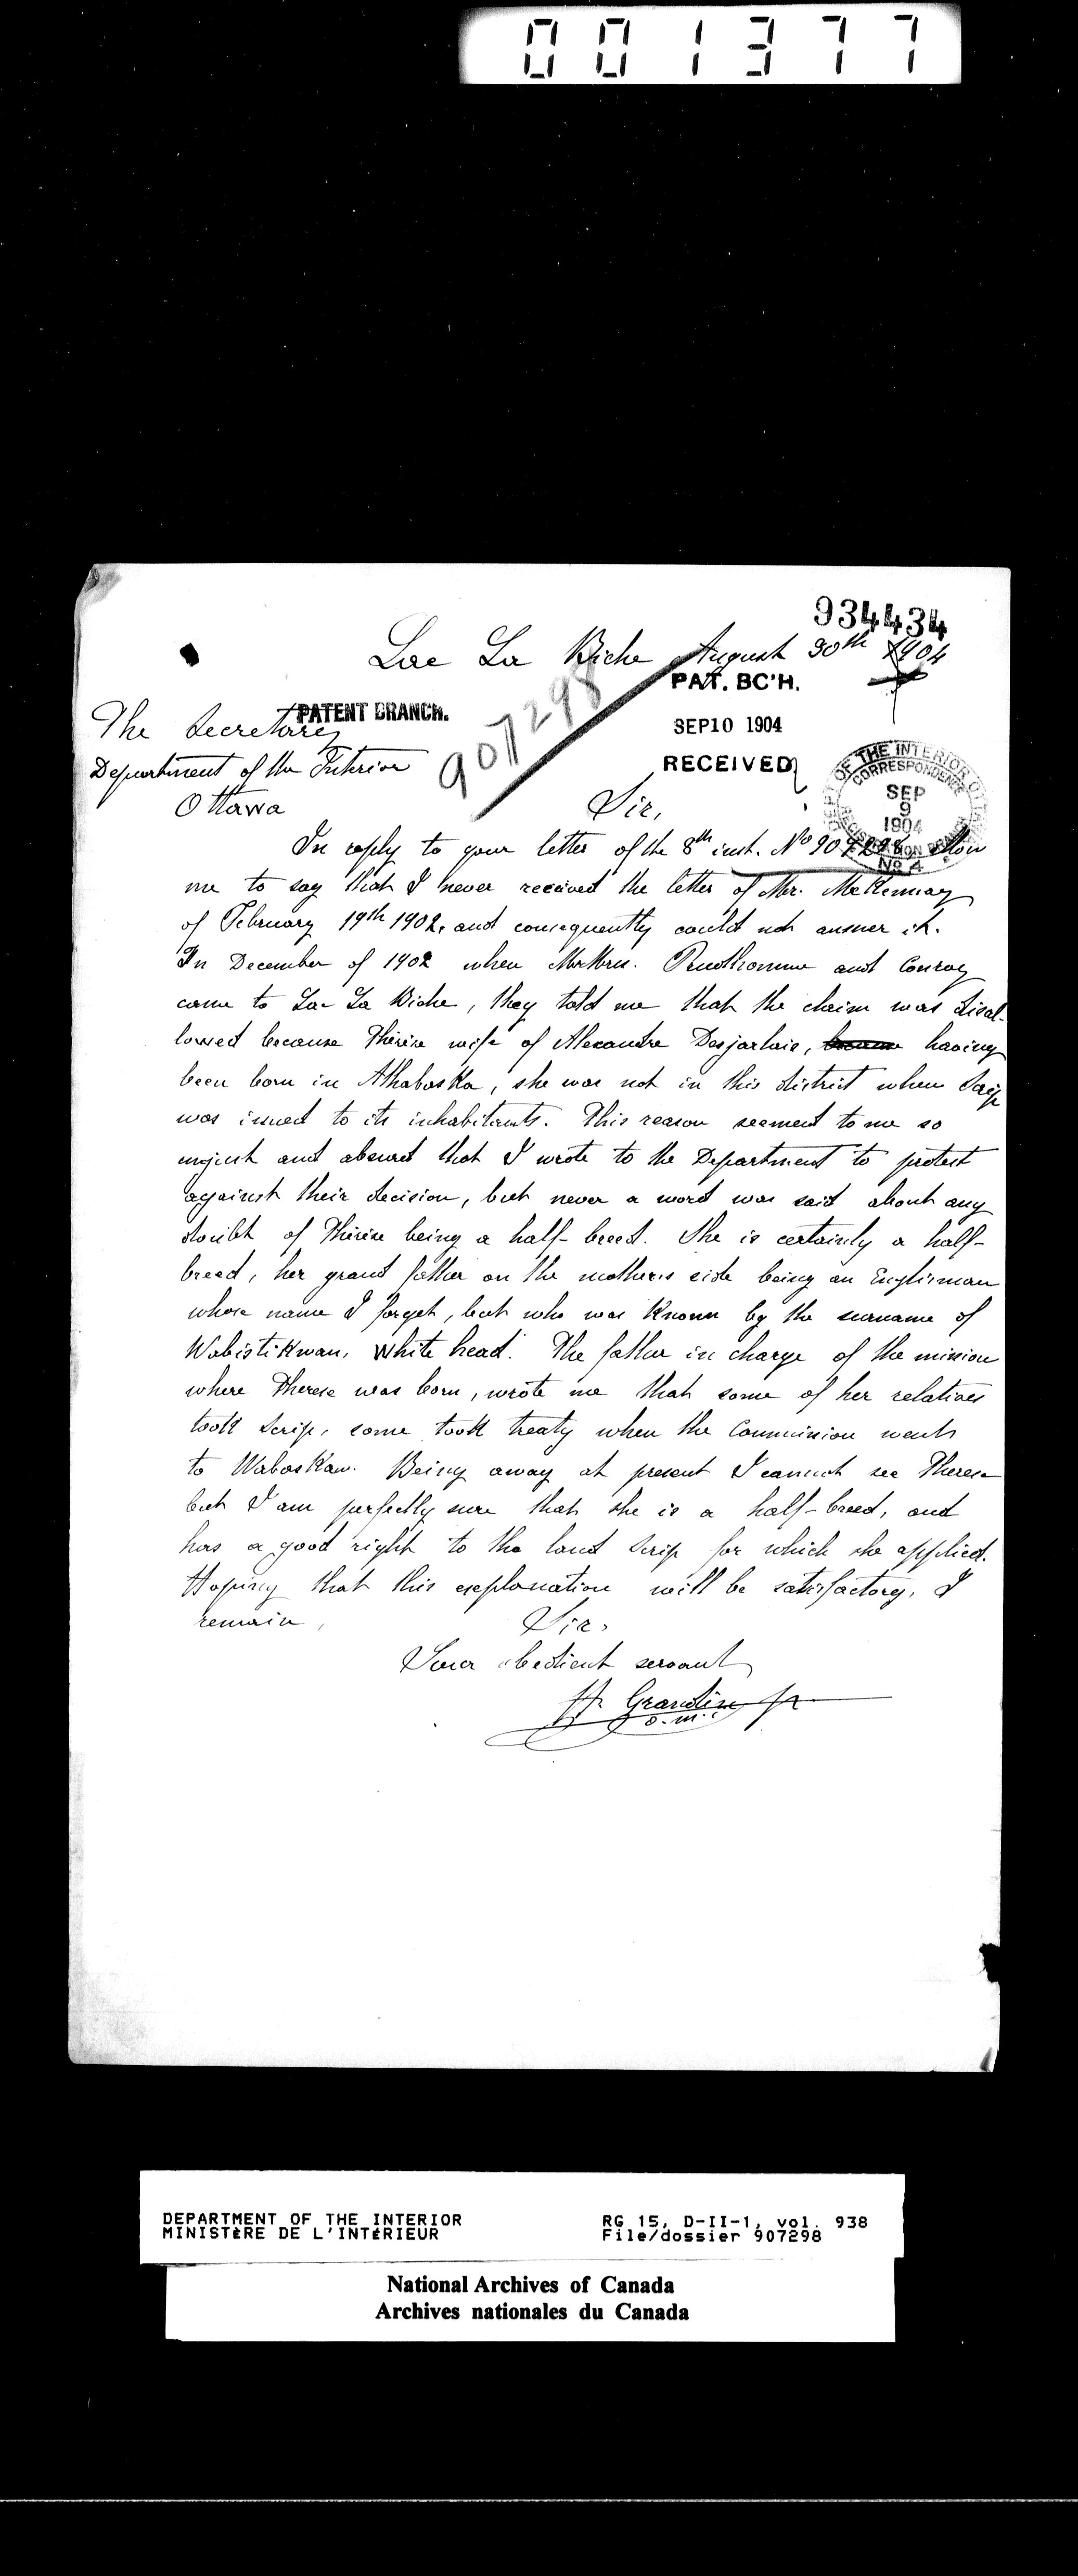 001377
934434
Lac La Biche August 30th 1904
PAT. BC'H.
PATENT BRANCH.
907298
SEP 10 1904
RECEIVED
The Secretary
Department of the Interior
Ottawa
OF THE INTERIOR
CORRESPONDENCE
SEP
9
1904
No 4
Sir,
In reply to your letter of the 8th inst. No 907298 allow
me to say that I never received the letter of Mr. McKennay
of February 19th 1902, and consequently could not answer it.
In December of 1902 when Messrs. Prudhomme and Conroy
came to Lac La Biche, they told me that the claim was disal-
lowed because Thérèse wife of Alexandre Desjarlais, having
been born in Athabaska, she was not in this district when Scrip
was issued to its inhabitants. This reason seemed to me so
unjust and absurd that I wrote to the Department to protest
against their decision, but never a word was said about any
doubt of Thérèse being a half-breed. She is certainly a half-
breed, her grand father on the mother's side being an Englisman
whose name I forget, but who was known by the surname of
Wabistikwan, White head. The father in charge of the mission
where Therese was born, wrote me that some of her relatives
took scrip, some took treaty when the Commission went
to Wabaskaw. Being away at present I cannot see Therese
but I am perfectly sure that she is a half-breed, and
has a good right to the land scrip for which she applied.
Hoping that this explanation will be satisfactory, I
remain,
Sir,
Your obedient servant
H. Grandin ptr
o.m.i.
DEPARTMENT OF THE INTERIOR
MINISTÈRE DE L'INTÉRIEUR
RG 15, D-II-1, vol. 938
File/dossier 907298
National Archives of Canada
Archives nationales du Canada